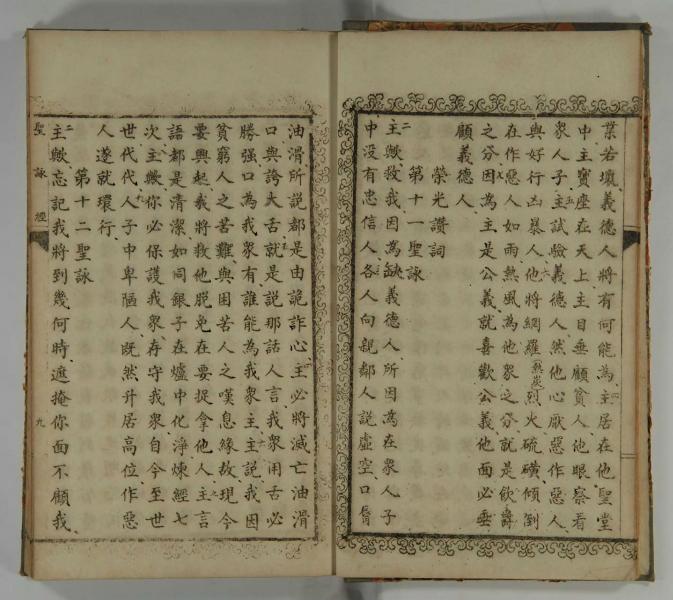 業若壞義德人將有何能為主居在他聖堂
中主寳座在天上主目垂顧貧人他眼察看
衆人子主試驗義德人然他心厭惡作惡人
與好行凶暴人他將網羅熱炭烈火硫磺傾倒
在作惡人如雨熱風為他衆之分就是飲爵
之分因為主是公義就喜歡公義他面必垂
顧義德人
榮光讚詞
第十一聖詠
主歟救我因為缺義德人所因為在衆人子
中没有忠信人各人向親鄰人説虛空口脣
油滑所説都是由詭詐心主必將滅亡油滑
口與誇大舌就是説那話人言我衆用舌必
勝强口為我衆有誰能為我衆主主説我因
貧窮人之苦難與困苦人之嘆息緣故現今
要興起我將救他脱免在要捉拿他人主言
語都是清潔如同銀子在爐中化淨煉經七
次主歟你必保護我衆存守我衆自今至世
世代代人子中卑陋人既然升居高位作惡
人遂就環行
第十二聖詠
主歟忘記我將到幾何時遮掩你面不顧我
聖詠經
九